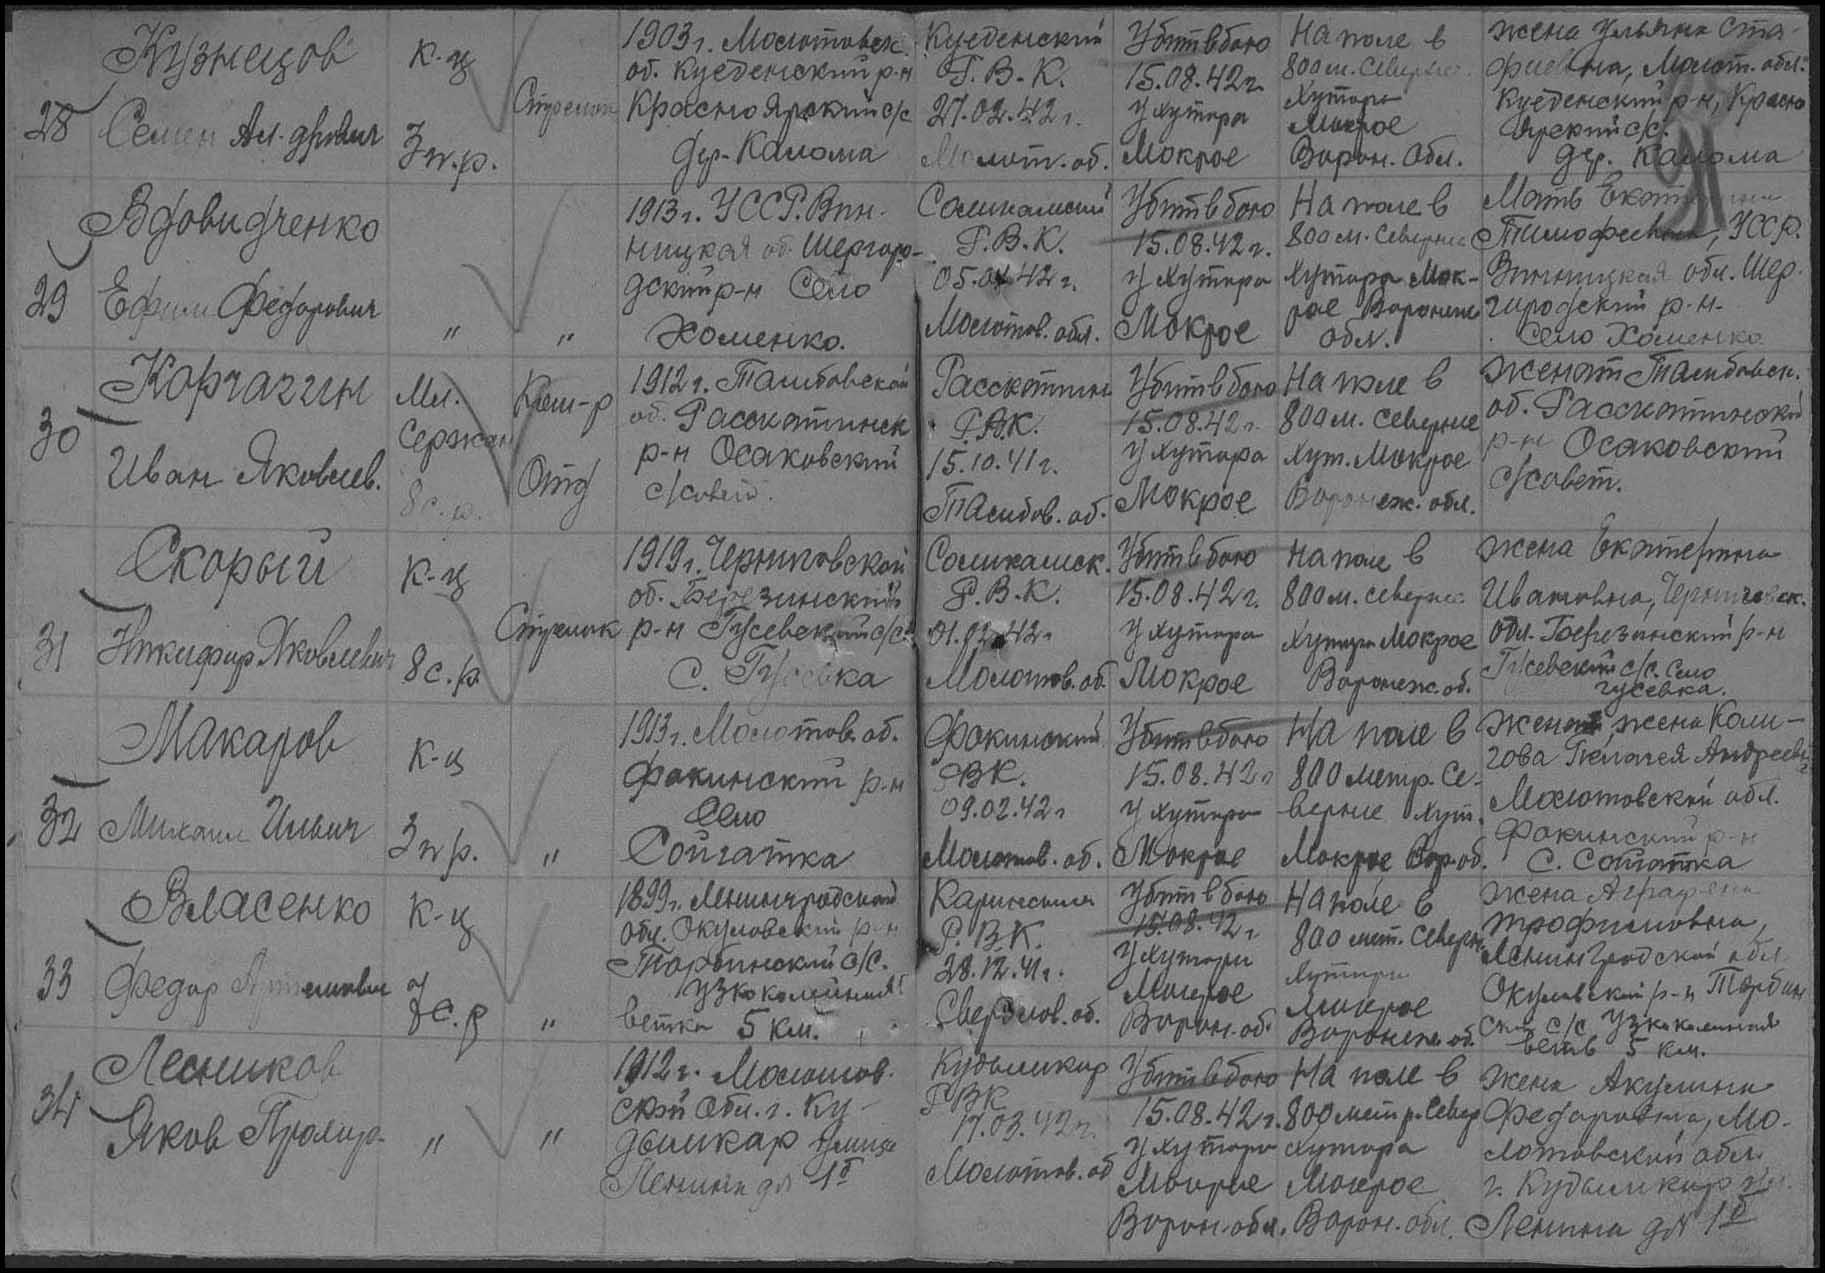 28
Кузнецов
Семен Ал-дрович
К-ц
3 п.р.
Стрелок
1903 г. Молотовск.
об. Куединский р-н
Красноярский с/с
дер. Калома
Куединский
Р.В.К.
27.02.42 г.
Молот. об.
Убит в бою
15.08.42 г.
у хутора
Мокрое
На поле в
800 м. Севернее
Хутора
Мокрое
Ворон. Обл.
жена Ульяна Ста-
фиевна, Молот. обл.
Куединский р-н, Красно
ярский с/с.
дер. Калома
29
Вдовидченко
Ефим Федорович
"
"
1913 г. УССР. Вин-
ницкая об. Шергоро-
дский р-н Село
Хоменко.
Соликамский
Р.В.К.
05.04.42 г.
Молотов. обл.
Убит в бою
15.08.42 г.
у Хутора
Мокрое
На поле в
800 м. Севернее
Хутора Мок-
рое Воронеж
обл.
Мать
Тимофеевна, УССР.
Винницкая обл. Шер-
городский р-н.
Село Хоменко
30
Корчагин
Иван Яковлев.
Мл.
Сержан
8 с.р.
Ком-р
Отд
1912 г. Тамбовской
об. Рассказтинск
р-н Осаковский
с/совет.
15.10.41 г.
Тамбов. об.
Убит в бою
15.08.42 г.
у хутора
Мокрое
На поле в
800 м. Севернее
Хут. Мокрое
Воронеж. обл.
женат Тамбовск.
р-н Осаковский
с/совет.
31
Скорый
Никифор Яковлевич
К-ц
8 с.р.
Стрелок
1919 г. Черниговской
об. Березинский
р-н Гусевский с/с.
с. Гусевка
Соликамск.
Р.В.К.
01.02.42 г.
Молотов. об.
Убит в бою
15.08.42 г.
у хутора
Мокрое
На поле в
800 м. Севернее
Хутора Мокрое
Воронеж. об.
жена Екатерина
Ивановна, Черниговск.
обл. Березинский р-н
Гусевский с/с. Село
гусевка.
32
Макаров
Михаил Ильич
К-ц
3 п.р.
"
1913 г. Молотов. об.
Фокинский р-н
Село
Сойгатка
Фокинский
РВК.
09.02.42 г
Молотов. об.
Убит в бою
15.08.42 г
у хутора
Мокрое
На поле в
800 метр. Се-
верние хут.
Мокрое Вор. об.
женат жена Кали-
гова Пелагея Андреевн
Молотовский обл.
Фокинский р-н
33
Власенко
Федор
К-ц
"
1899 г. Ленинградской
обл. Окуловский р-н
Торбинский с/с.
Узкоколейная
ветка 5 км.
Р.В.К.
28.12.41 г.
Свердлов. об.
Убит в бою
15.08.42 г
у хутора
Мокрое
Ворон. об.
На поле в
800 мет. Северн.
хутора
Мокрое
Воронеж. об.
жена Аграфена
Трофимовна,
Ленинградской обл.
Окуловский р-н Торбин
ский с/с Узкоколейная
ветв 5 км.
34
Лесников
Яков Прокор.
"
"
1912 г. Молотов-
ской Обл. г. Ку-
дымкар улица
Ленина д№ 1
Кудымкар
РВК
17.03.42 г.
Молотов. об
Убит в бою
15.08.42 г.
у хутора
Мокрые
Ворон. обл.
На поле в
800 метр. Север
хутора
Мокрое
Ворон. обл.
жена Акулина
Федоровна, Мо-
лотовской обл.
г. Кудымкар ул.
Ленина д№ 1